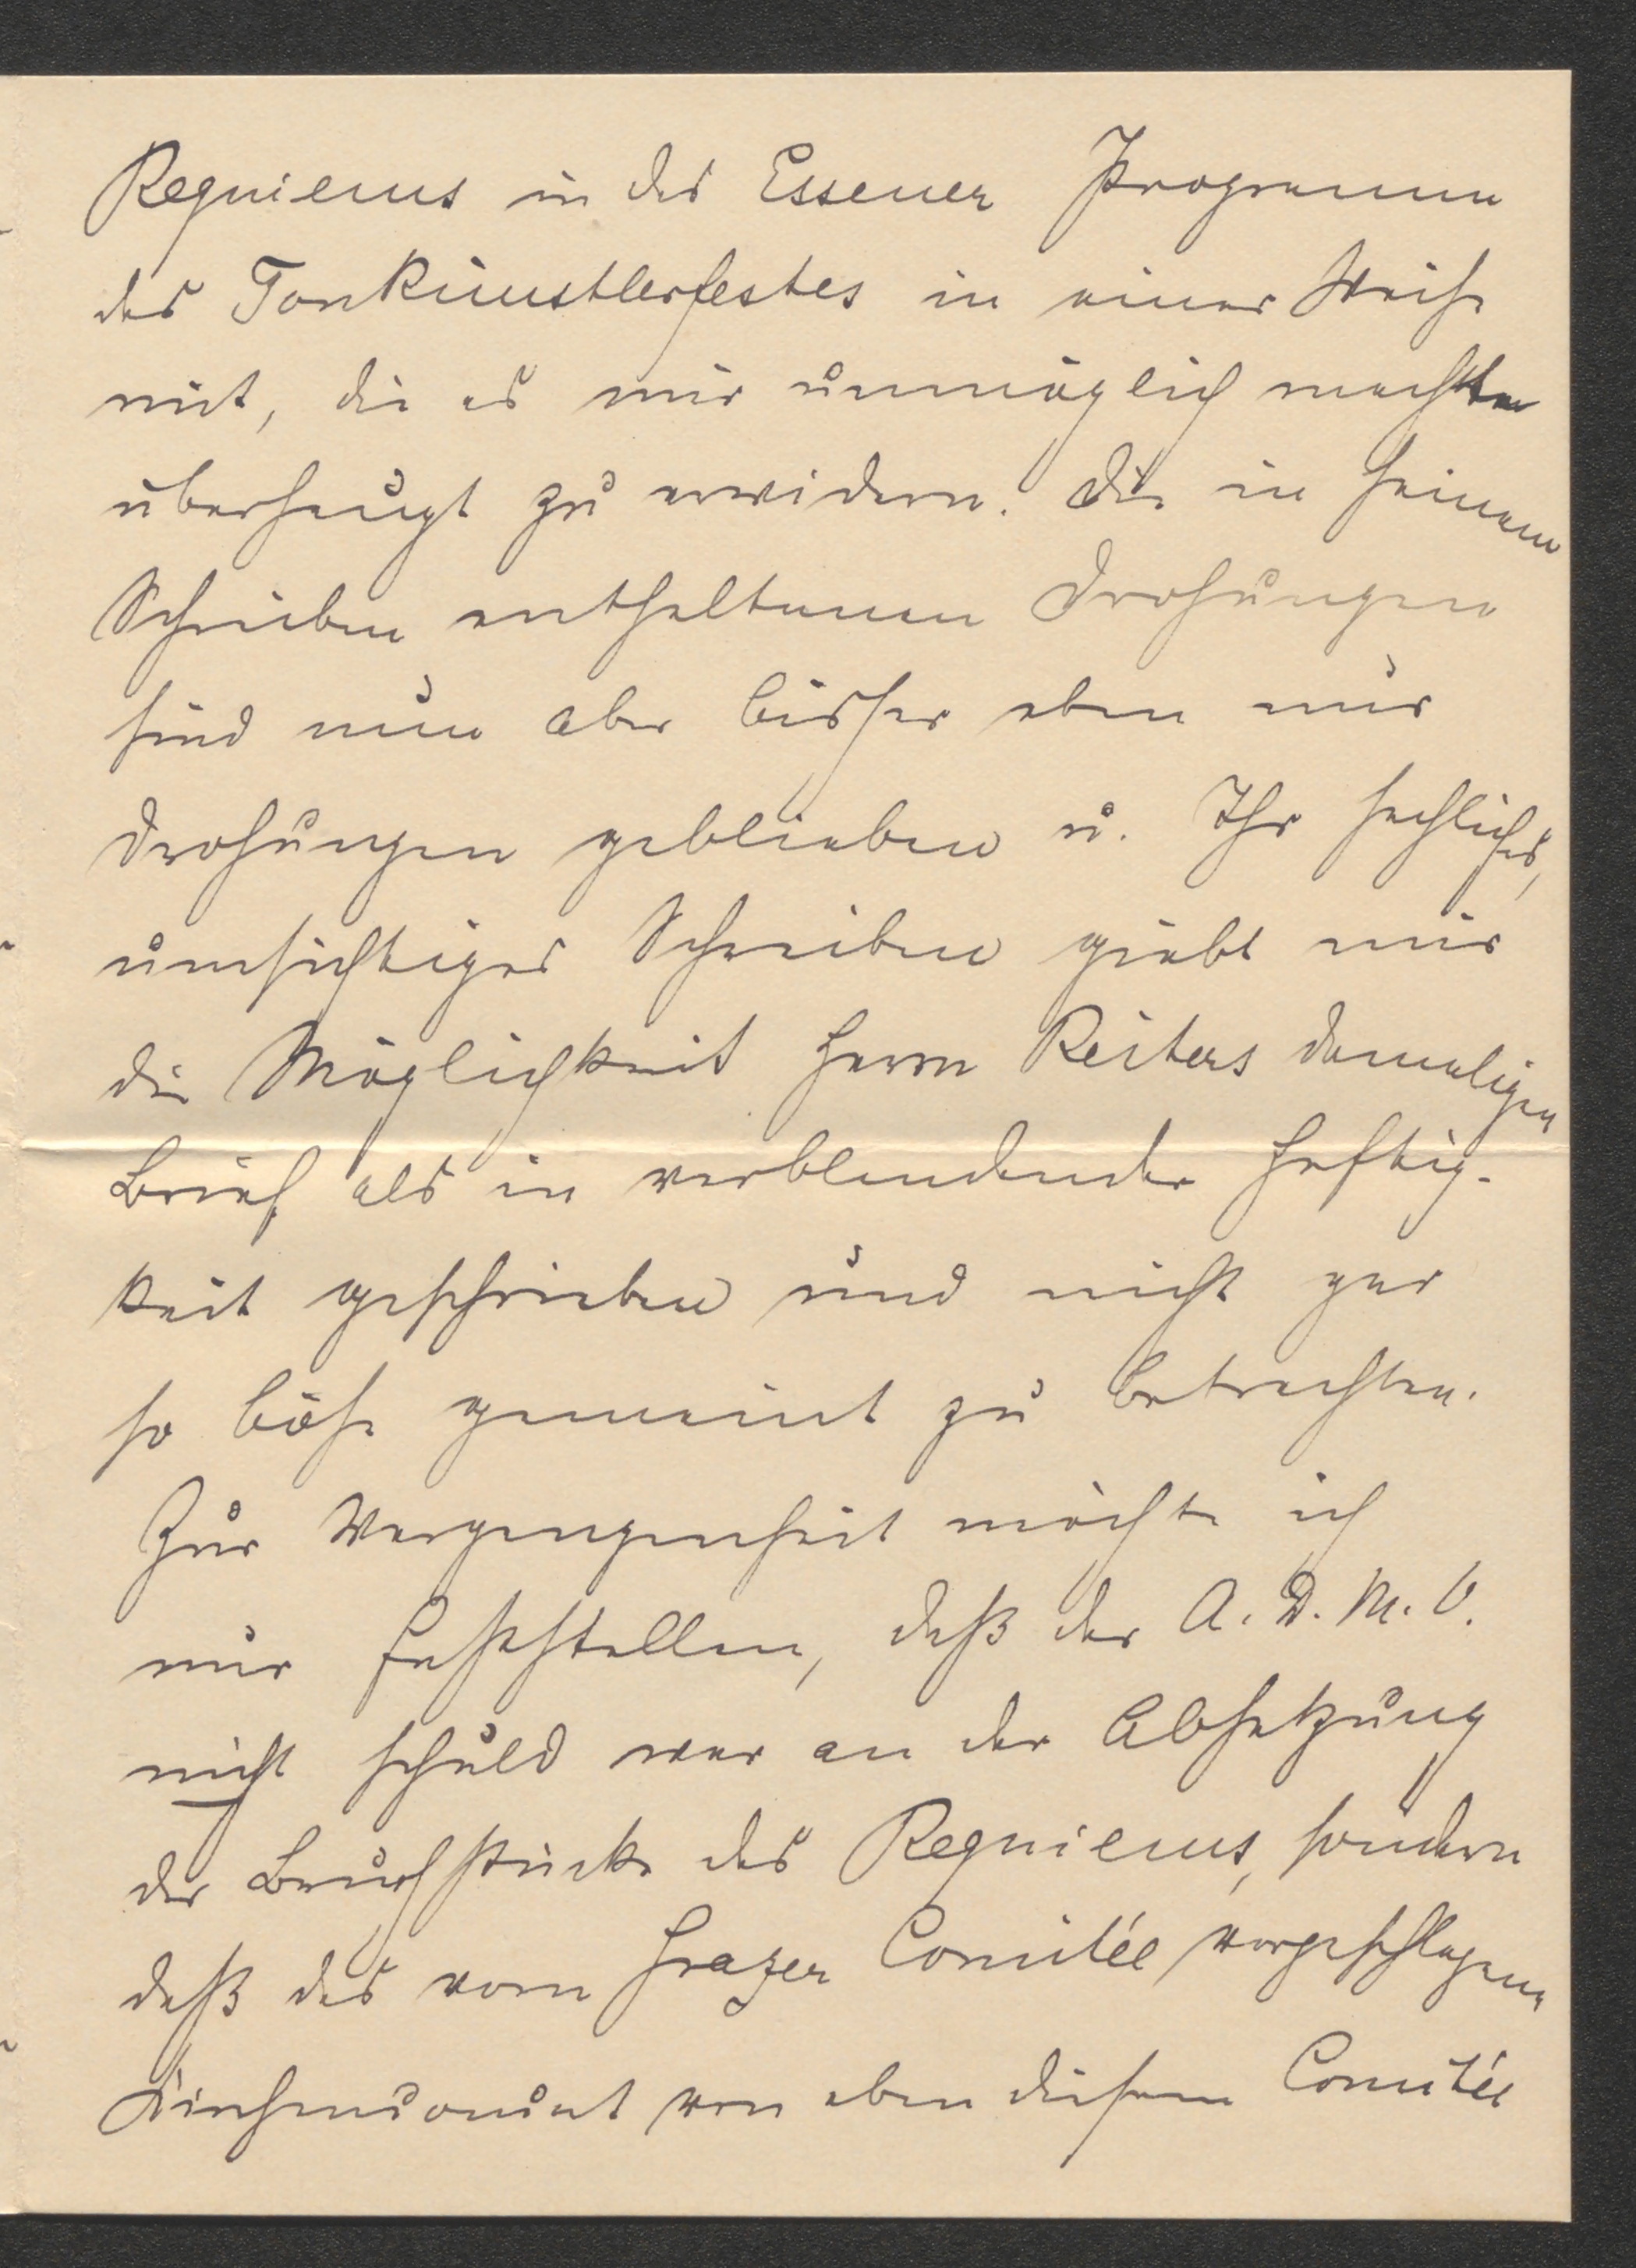 Requiems in das Essener Programm
des Tonkünstlerfestes in einer Weise
mit, die es mir unmöglich machte
überhaupt zu erwidern. Die in seinem
Schreiben enthaltenen Drohungen
sind nun aber bisher eben nur
Drohungen geblieben u. Ihr sachliches,
umsichtiges Schreiben giebt mir
die Möglichkeit Herrn Reiters damaligen
Brief als in verblendender Heftig-
keit geschrieben und nicht gar
so böse gemeint zu betrachten.
Zur Vergangenheit möchte ich
nur feststellen, daß der A. D. M. V.
nicht schuld war an der Absetzung
der Bruchstücke des Requiems, sondern
daß das vom Grazer Comitée vorgeschlagene
Kirchenconcert von eben diesem Comitée